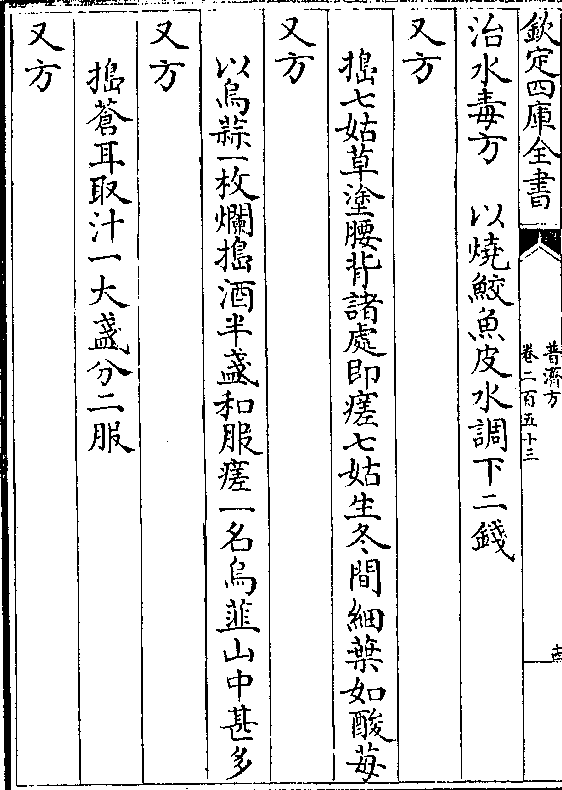 欽定四庫全書
普濟方
卷二百五十三
治水毒方　以燒鮫魚皮水調下二錢
又方
搗七姑草塗腰背諸處即瘥七姑生冬間細葉如酸苺
又方
以烏蒜一枚爛搗酒半盞和服瘥一名烏韮山中甚多
又方
搗蒼耳取汁一大盞分二服
又方